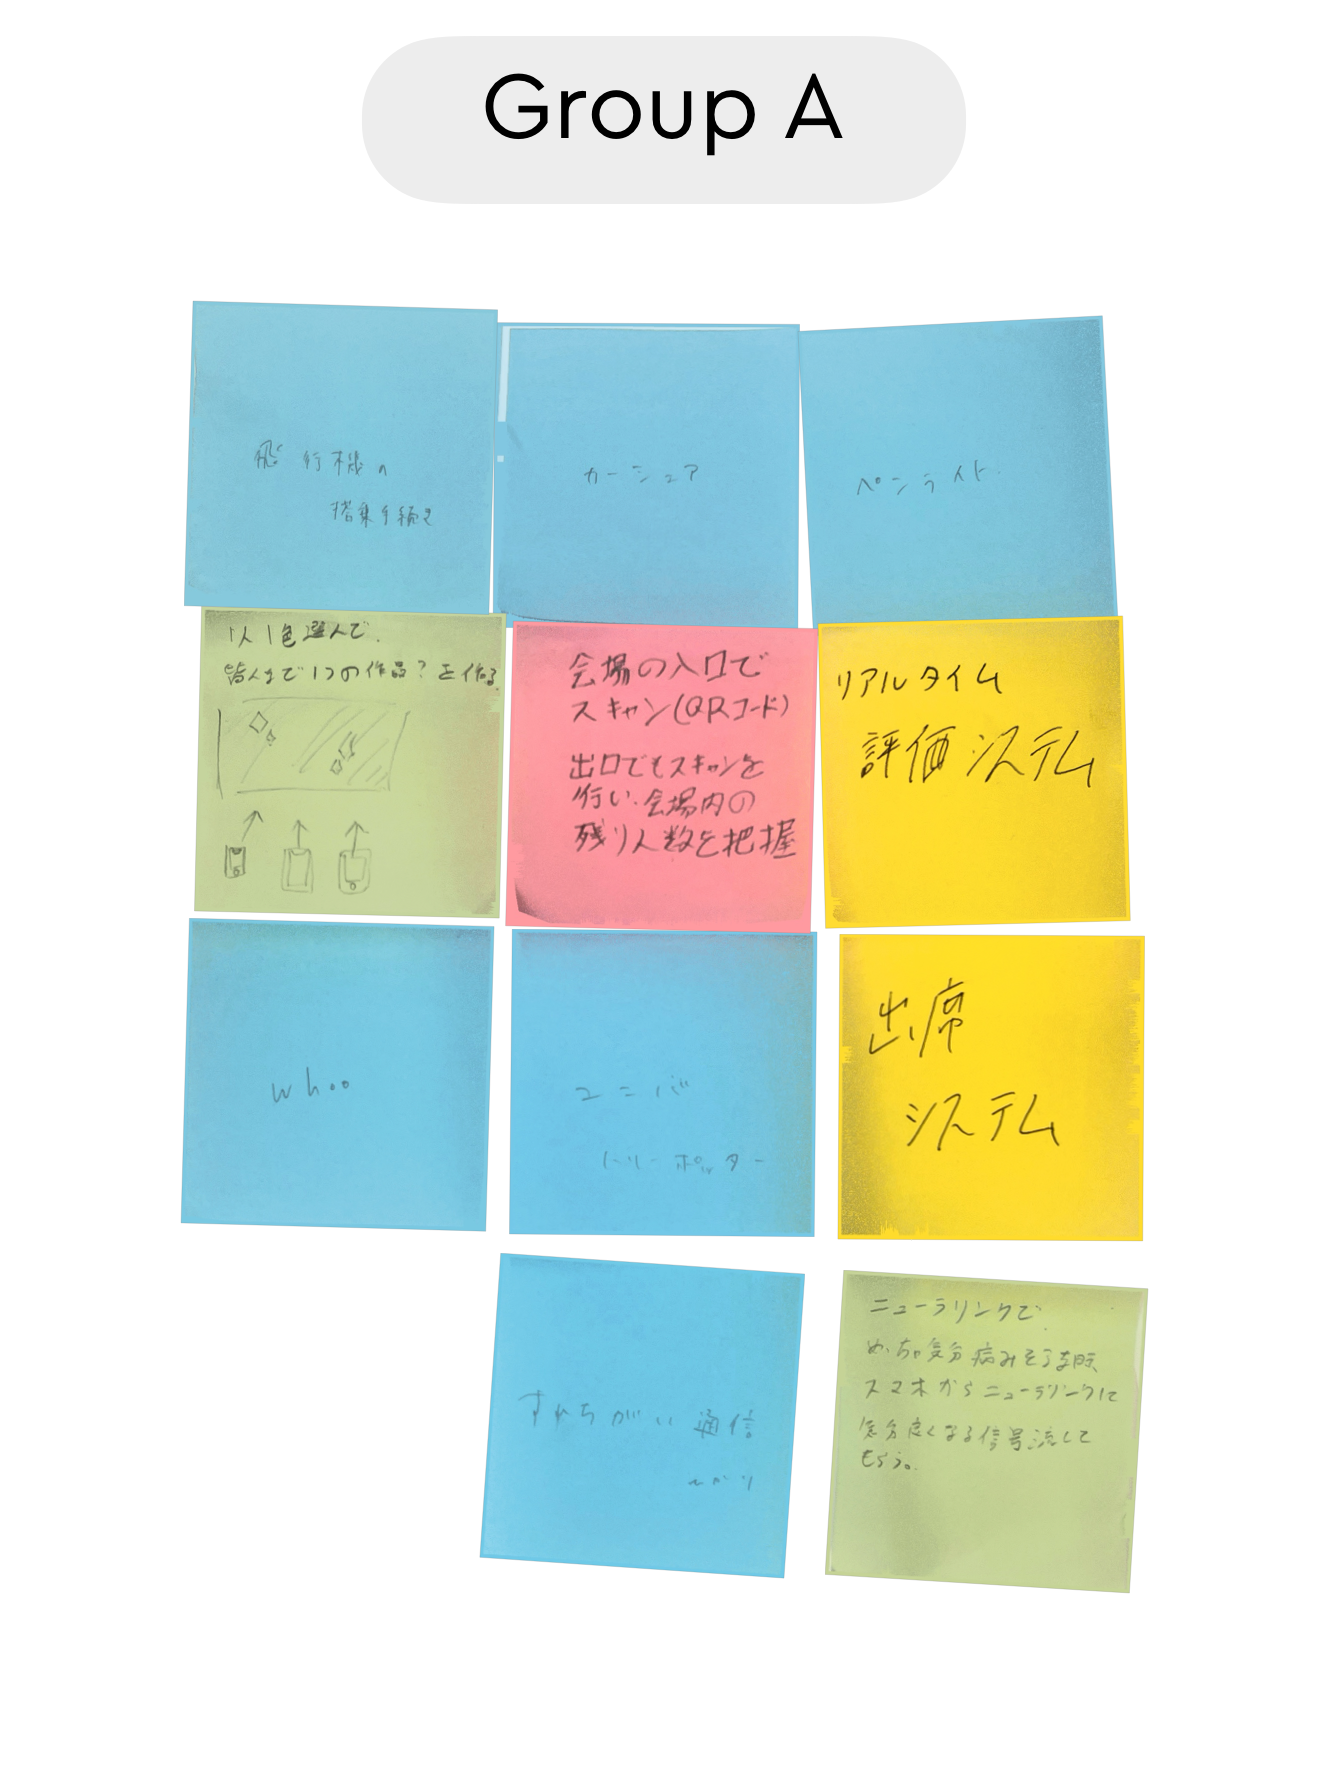 Group A
飛行機の
搭乗手続き
カーシェア
ペンライト
1人1色選んで、
皆んなで1つの作品?を作る
会場の入口で
スキャン(QRコード)
出口でもスキャンを
行い、会場内の
残り人数を把握
リアルタイム
評価システム
whoo
ユニバ
ハリーポッター
出席
システム
すれちがい通信
ニューラリンクで
めっちゃ気分病みそうな時
スマホからニューラリンクに
気分良くなる信号流して
もらう。